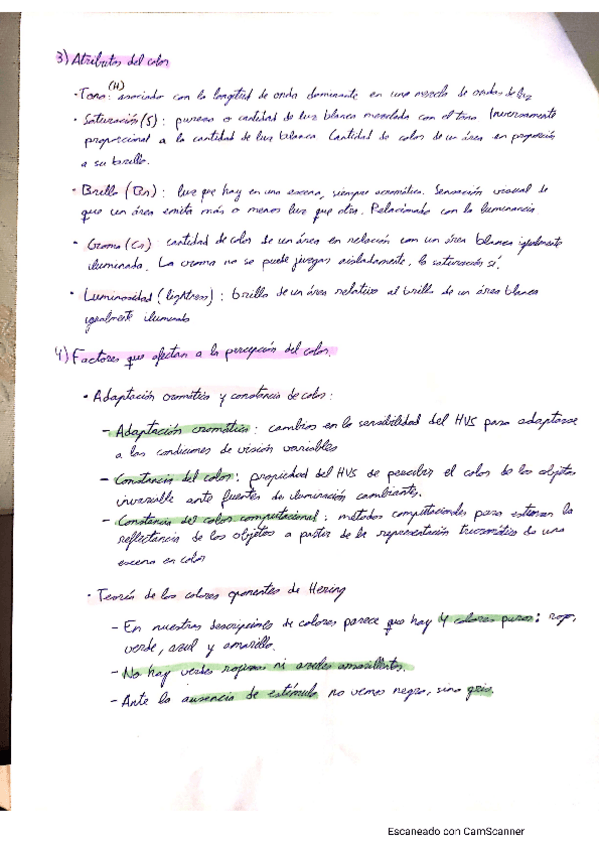 3) Atributos del color
· Tono (H): asociado con la longitud de onda dominante en una mezcla de ondas de luz
· Saturación (S): pureza o cantidad de luz blanca mezclada con el tono. Inversamente
proporcional a la cantidad de luz blanca. Cantidad de color de un área en proporción
a su brillo.
· Brillo (Bn): luz que hay en una escena, siempre acromática. Sensación visual de
que un área emita más o menos luz que otra. Relacionado con la luminancia
· Croma (Cn) cantidad de color de un área en relación con un área blanca igualmente
iluminada. La croma no se puede juzgar aisladamente, la saturación sí.
· Luminosidad (lightness): brillo de un área relativo al brillo de un área blanca
igualmente iluminada
4) Factores que afectan a la percepción del color.
· Adaptación cromática y constancia de color:
- Adaptación cromática: cambios en la sensibilidad del HVS para adaptarse
a las condiciones de visión variables
- Constancia del color: propiedad del HVS de percibir el color de los objetos
invariable ante fuentes de iluminación cambiantes.
- Constancia del color computacional: métodos computacionales para estimar la
reflectancia de los objetos a partir de la representación tricromática de una
escena en color
· Teoría de los colores oponentes de Hering
- En nuestras descripciones de colores parece que hay 4 colores puros: rojo,
verde, azul y amarillo.
- No hay verdes rojizos ni azules amarillentos.
- Ante la ausencia de estímulo no vemos negro, sino gris.
Escaneado con CamScanner